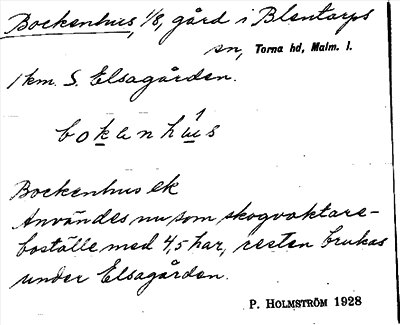 Bockenhus, 1/8, gård i Blentarps
sn, Torna hd, Malm. l.
1 km. S. Elsagården.
bokenhus
Bockenhus ek
Användes nu som skogvaktare-
boställe med 4,5 har, resten brukas
under Elsagården.
P. HOLMSTRÖM 1928